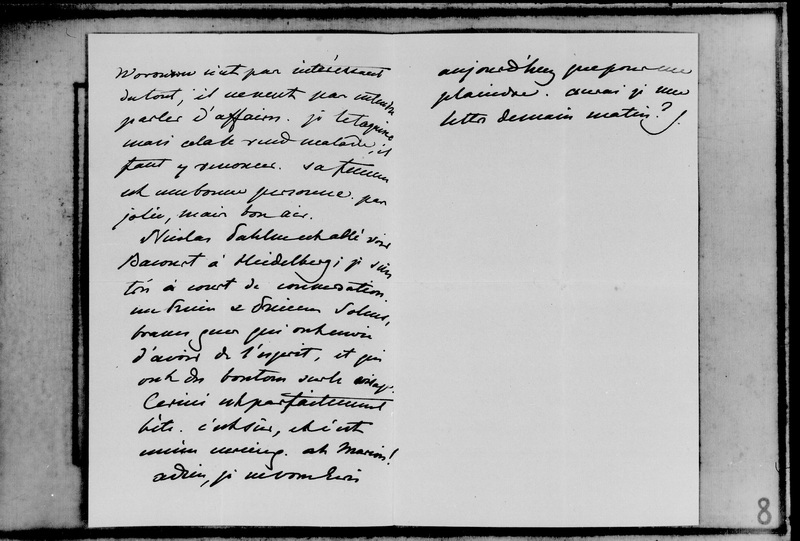 Woronzow n'est pas intéressant
du tout; il ne veut pas entendre
parler d'affaires. je le taquine
mais cela le rend malade, il
faut y renoncer. sa femme
est une bonne personne. pas
jolie, mais bon air.
Nicolas Pahlen est allé voir
Bacourt à Heidelberg; je suis
très à court de conversation.
un Prince & Princesse Solms,
braves gens qui ont envie
d'avoir de l'esprit, et qui
ont des boutons sur le visage.
Cerini est parfaitement
bête. c'est sûr, et c'est
ah Marion!
adieu, je ne vous écris
aujourd'huy que pour me
plaindre. aurai je une
lettre demain matin?
8